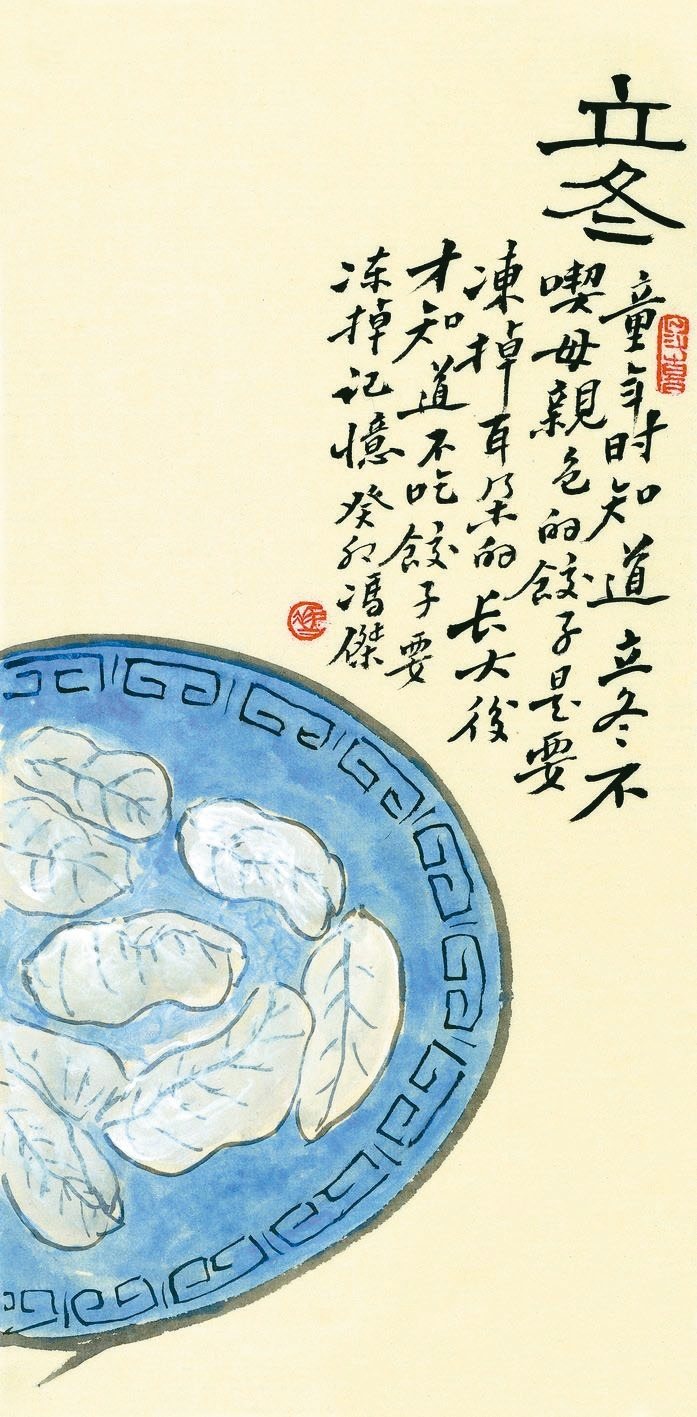 立冬
童年时知道立冬不
喫母親包的餃子是要
凍掉耳朵的长大後
才知道不吃餃子要
冻掉记憶癸卯馮傑